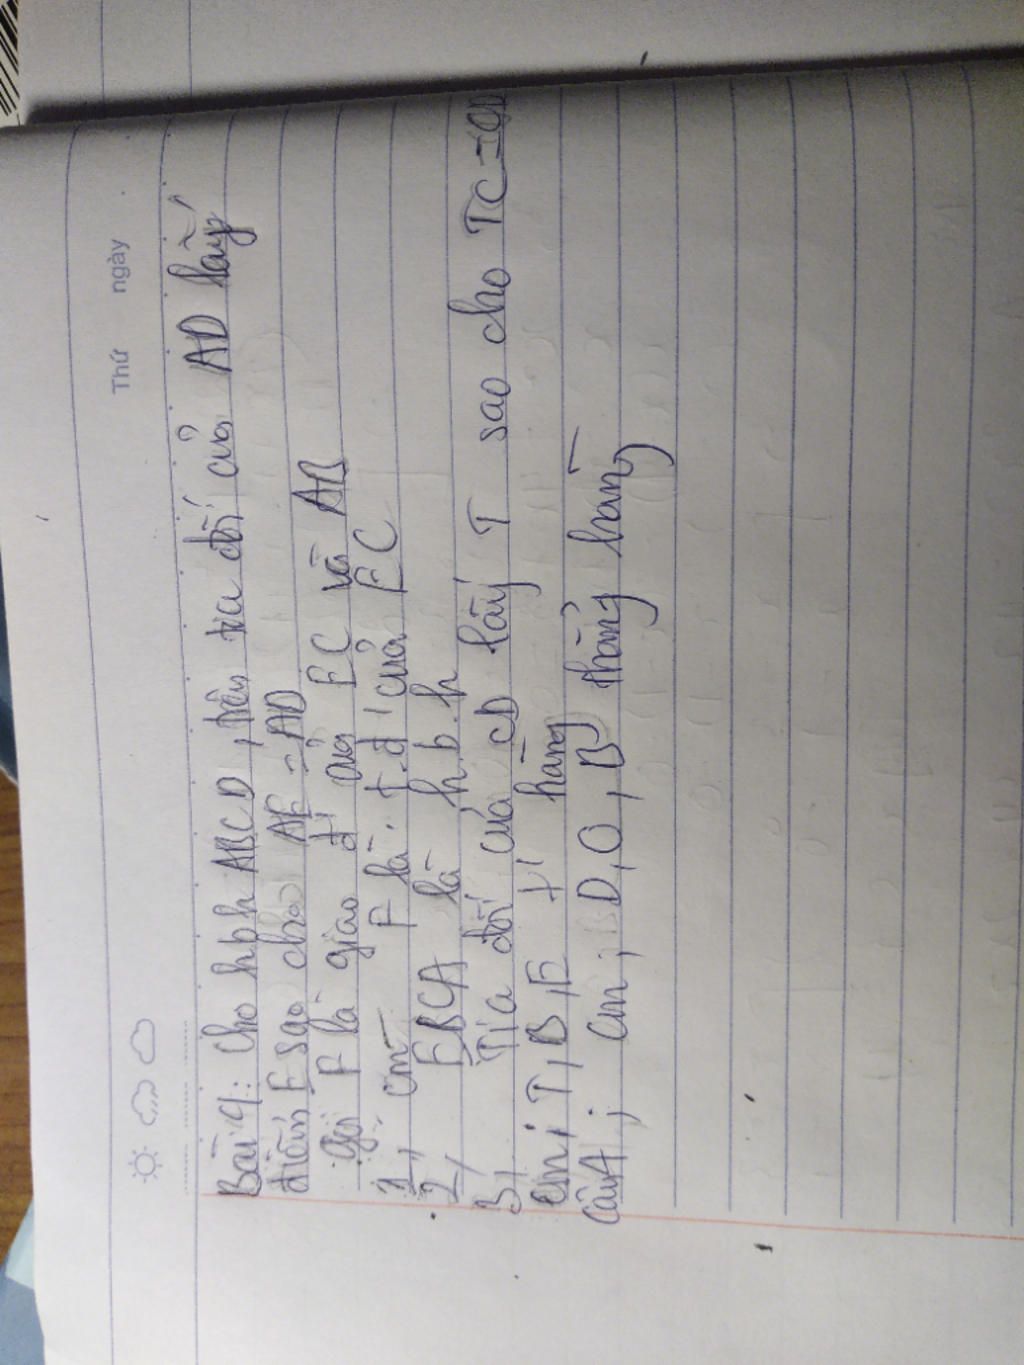 Thứ ngày
Bài 4: Cho hbh ABCD, trên tia đối của AD lấy
điểm E sao cho AE = AD
gọi F là giao đ' của EC và AB
1, cm F là t.đ' của EC
2, EBCA là h.b.h
3, Tia đối của CD lấy T sao cho TC =
cm; T, B, E t' hàng
câu 4; cm; D, O, B thẳng hàng